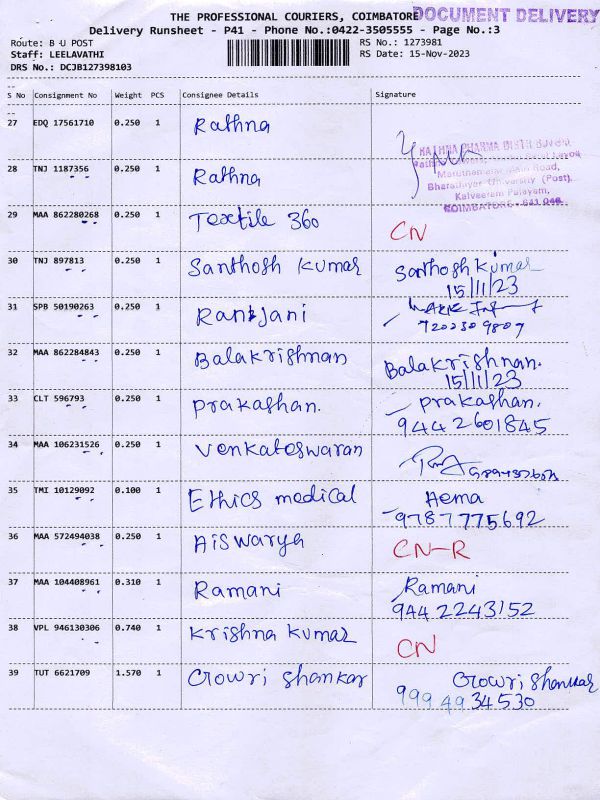 THE PROFESSIONAL COURIERS, COIMBATORE
DOCUMENT DELIVERY
Delivery Runsheet - P41 - Phone No.:0422-3505555 - Page No.:3
Route: B U POST RS No.: 1273981
Staff: LEELAVATHI RS Date: 15-Nov-2023
DRS No.: DCJB127398103
S No Consignment No Weight PCS Consignee Details Signature
27 EDQ 17561710 0.250 1 Rathna
RATHNA PHARMA DISTRIBUTORS
Maruthamalai Main Road,
Bharathiyar University (Post),
Kalveeram Palayam,
COIMBATORE - 641 046.
28 TNJ 1187356 0.250 1 Rathna
29 MAA 862280268 0.250 1 Textile 360 CN
30 TNJ 897813 0.250 1 Santhosh Kumar Santhosh Kumar
15/11/23
31 SPB 50190263 0.250 1 Ranjani
7202309807
32 MAA 862284843 0.250 1 Balakrishnan Balakrishnan.
15/11/23
33 CLT 596793 0.250 1 Prakashan. Prakashan.
9442601845
34 MAA 106231526 0.250 1 Venkateswaran
35 TMI 10129092 0.100 1 Ethics medical Hema
9787775692
36 MAA 572494038 0.250 1 Aiswarya CN-R
37 MAA 104408961 0.310 1 Ramani Ramani
9442243152
38 VPL 946130306 0.740 1 Krishna Kumar CN
39 TUT 6621709 1.570 1 Gowri Shankar Gowri Shankar
9994934530